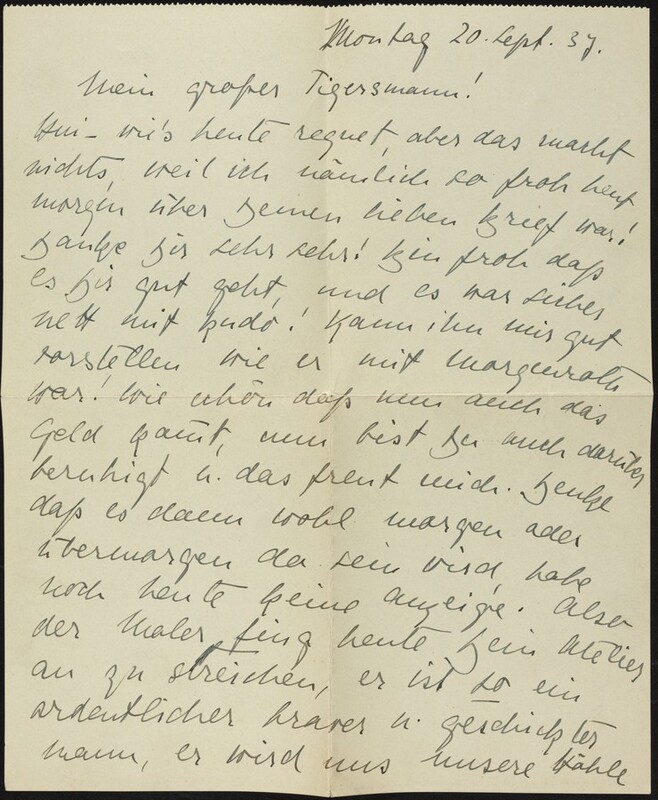 Montag 20. Sept. 37.
Mein großer Tigersmann!
Hui – wie's heute regnet, aber das macht
nichts, weil ich nämlich so froh heut
morgen über Deinen lieben Brief war!
Danke Dir sehr sehr! Bin froh daß
es Dir gut geht, und es war sicher
nett mit Kudo! Kann ihn mir gut
vorstellen wie er mit Morgenroth
war! Wie schön daß nun auch das
Geld kam̄t, nun bist Du auch darüber
beruhigt u. das freut mich. Denke
daß es dann wohl morgen oder
übermorgen da sein wird, habe
noch heute keine Anzeige. Also
der Maler fing heute Dein Atelier
an zu streichen, er ist so ein
ordentlicher braver u. geschickter
Mann, er wird uns unsere Höhle